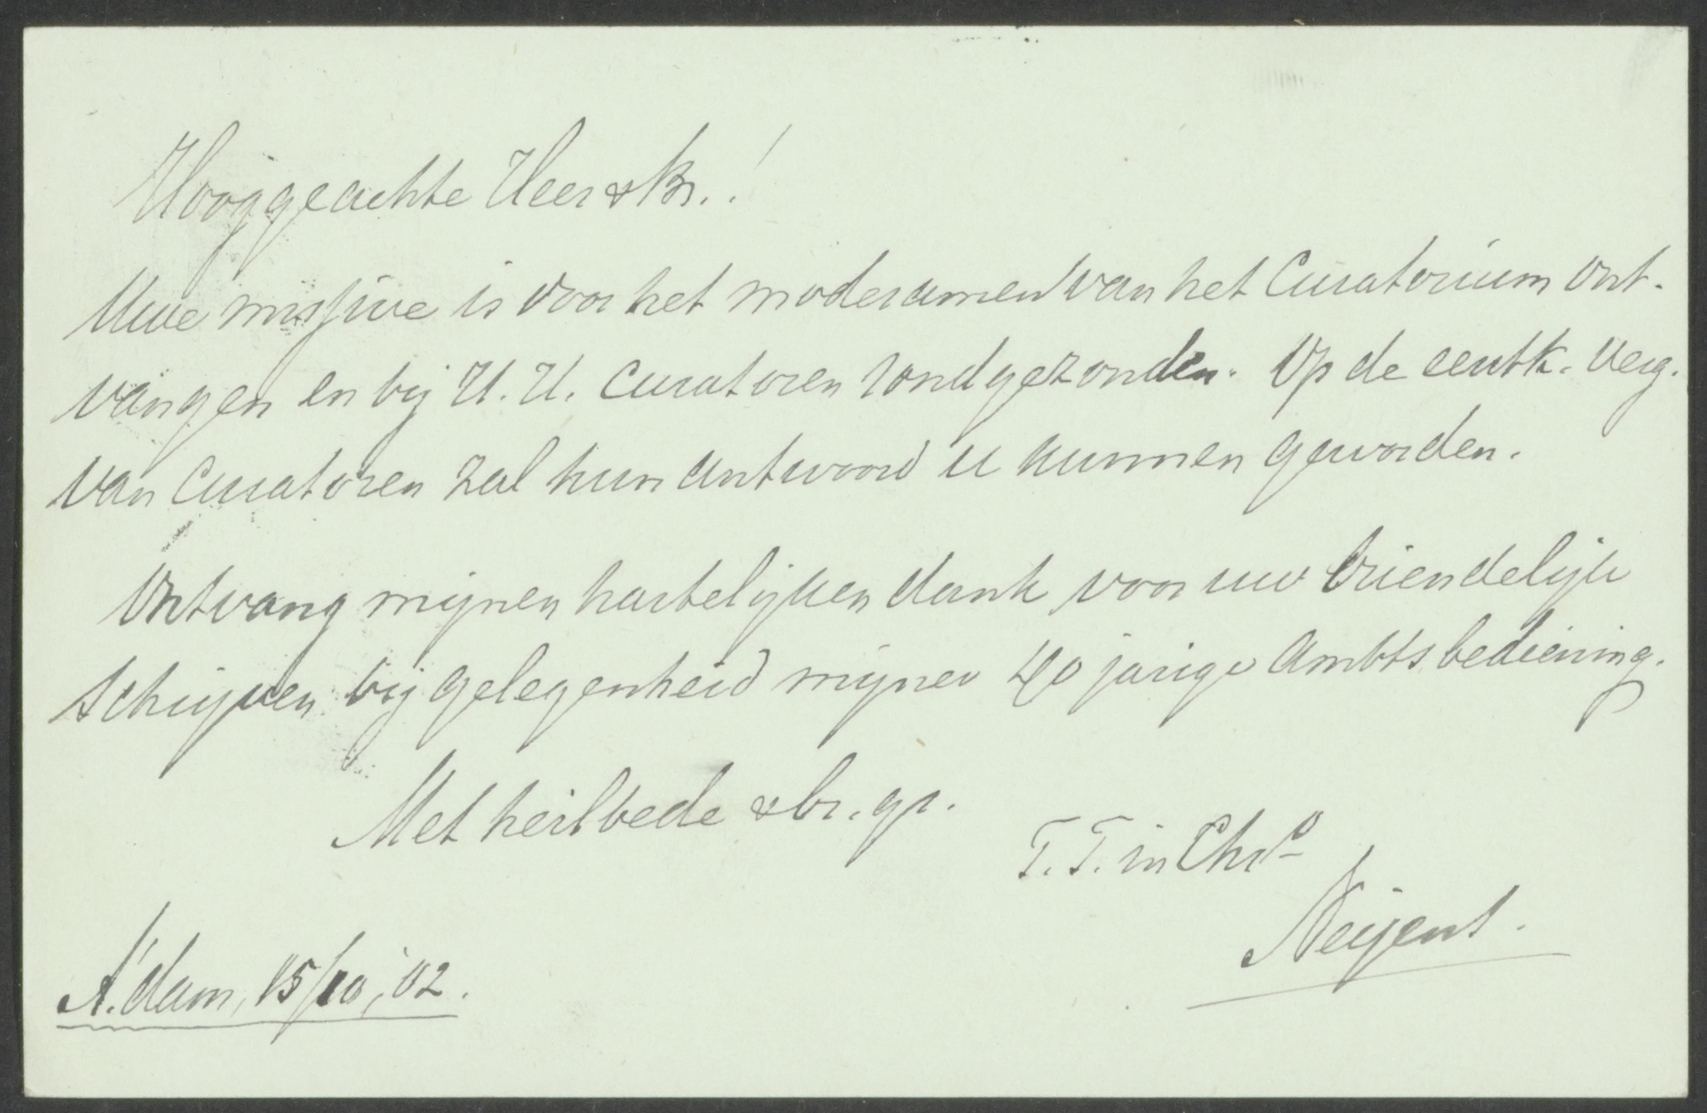 Hooggeachte Heer & Br.!
Uwe missive is voor het moderamen van het Curatorium ont-
vangen en bij H.H. Curatoren rondgezonden. Op de eerstk. verg.
van Curatoren zal hun antwoord u kunnen geworden.
Ontvang mijnen hartelijken dank voor uw vriendelijk
schrijven bij gelegenheid mijner 40 jarige Ambtsbediening.
Met heilbede & br. gr.
T. T. in Chro
Neijens.
A'dam, 15/10, '02.